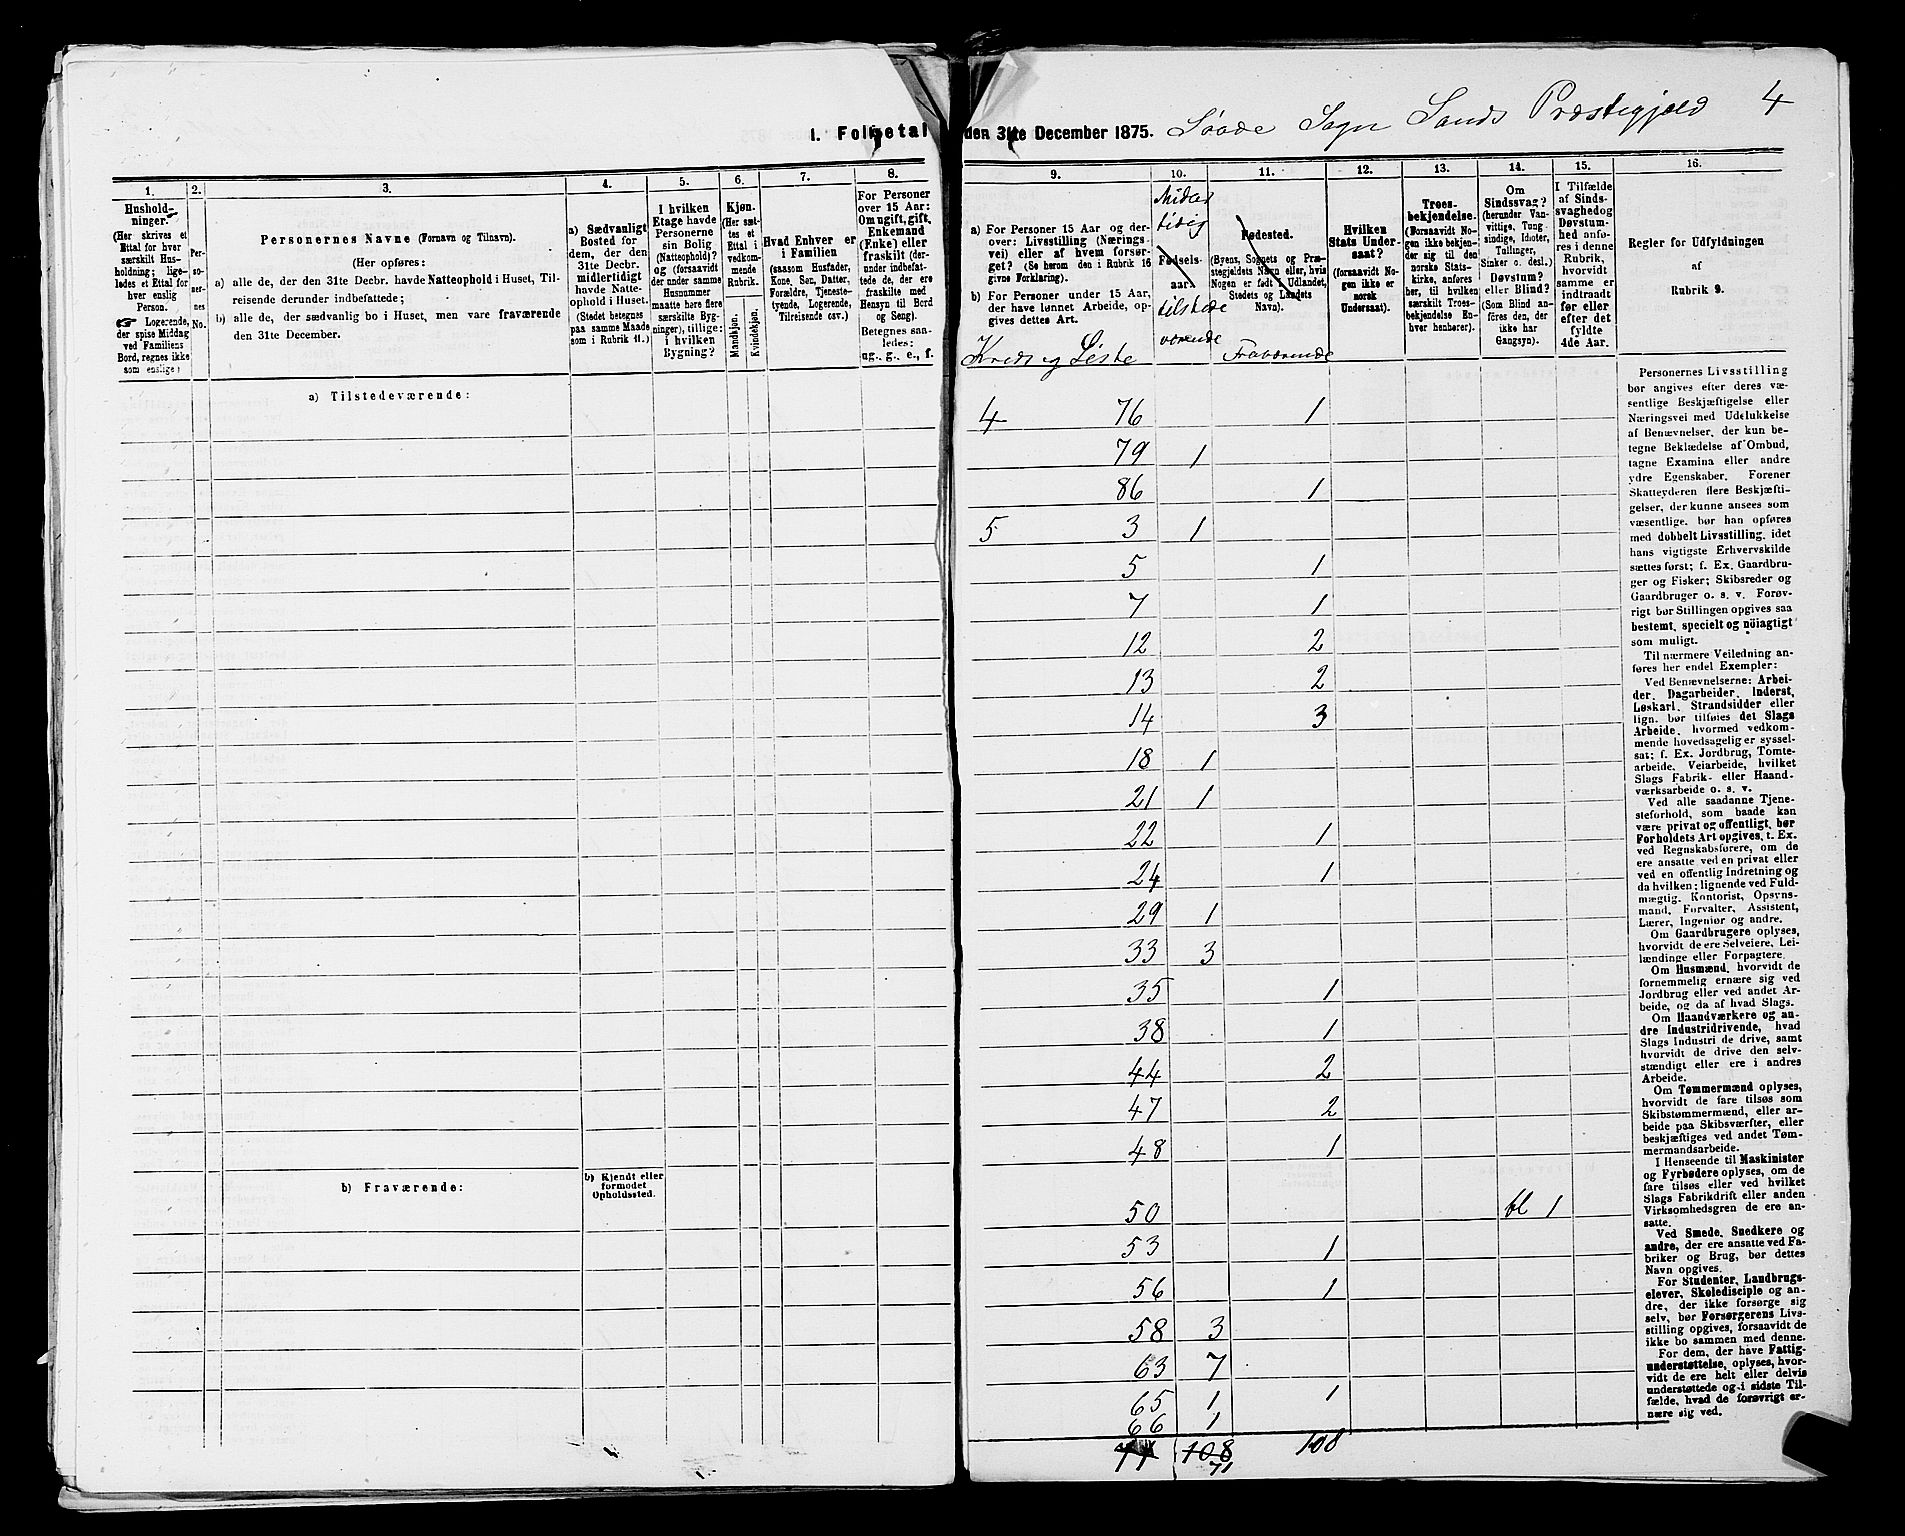 1. Folketal den 31te December 1875. Sogn Sands Præstegjeld 4
1. 2. 3. 4. 5. 6. 7. 8.
Husholdninger.
(Her skrives et
Ettal for hver
særskilt Husholdning; ligeledes et Ettal for
hver enslig
Person.
☞ Logerende,
der spise Middag
ved Familiens
Bord, regnes ikke
som enslige)
Personernes No.
Personernes Navne (Fornavn og Tilnavn).
(Her opføres:
a) alle de, der den 31te Decbr. havde Natteophold i Huset, Tilreisende derunder indbefattede;
b) alle de, der sædvanlig bo i Huset, men vare fraværende
den 31te December.
a) Sædvanligt
Bosted for
dem, der den
31te Decbr.
midlertidigt
havde Natteophold i Huset.
(Stedet betegnes
paa samme Maade
som i Rubrik 11.)
I hvilken
Etage havde
Personerne
sin Bolig
(Natteophold)?
og (forsaavidt
der under samme
Husnummer
maatte høre flere
særskilte Bygninger), tillige:
i hvilken
Bygning?
Kjøn.
(Her sættes et
Ettal i
vedkommende
Rubrik.
Mandkjøn.
Kvindekjøn.
Hvad Enhver er
i Familien
(saasom Husfader,
Kone, Søn, Datter,
Forældre, Tjenestetyende, Logerende,
Tilreisende osv.)
For Personer
over 15 Aar:
Om ugift, gift,
Enkemand
(Enke) eller
fraskilt (derunder indbefattede de, der ere
fraskilte med
Hensyn til Bord
og Seng).
Betegnes saaledes:
ug., g., e., f.
a) Tilstedeværende:
b) Fraværende:
b) Kjendt eller
formodet
Opholdssted.
9. 10. 11. 12. 13. 14. 15. 16.
a) For Personer 15 Aar og derover: Livsstilling (Næringsvei) eller af hvem forsørget? (Se herom den i Rubrik 16
givne Forklaring).
b) For Personer under 15 Aar,
der have lønnet Arbeide, opgives dettes Art.
Kreds og Liste
Midlertidig
Fødselsaar.
tilstedeværende
Fødested.
(Byens, Sognets og Præstegjeldets Navn eller, hvis
Nogen er født i Udlandet,
Stedets og Landets
Navn).
Fraværende
Hvilken
Stats Undersaat?
(forsaavidt Nogen ikke er
norsk
Undersaat).
Troesbekjendelse.
(Forsaavidt Nogen ikke bekjender sig til den
norske Statskirke, anføres
her, til hvilken
særskilt Troesbekjendelse Enhver henhører).
Om
Sindssvag?
(herunder Vanvittige, Tungsindige, Idioter,
Tullinger,
Sinker o. desl.)
Døvstum?
eller Blind?
(Som Blind anføres den, der
ikke har
Gangsyn).
I Tilfælde
af Sindssvaghed og
Døvstumhed anføres i denne
Rubrik,
hvorvidt
samme er
indtraadt
før eller
efter det
fyldte
4de Aar.
Regler for Udfyldningen
af
Rubrik 9.
4 76 1
79 1
86 1
5 3 1
5 1
7 1
12 2
13 2
14 3
18 1
21 1
22 1
24 1
29 1
33 3
35 1
38 1
44 2
47 2
48 1
50 bl 1
53 1
56 1
58 3
63 7
65 1 1
66 1
108 108
71
Personernes Livsstilling
bør angives efter deres væsentlige Beskjæftigelse eller
Næringsvei med Udelukkelse
af Benævnelser, der kun betegne Beklædelse af Ombud,
tagne Examina eller andre
ydre Egenskaber. Forener
Skatteyderen flere Beskjæftigelser, der kunne ansees som
væsentlige, bør han opføres
med dobbelt Livsstilling, idet
hans vigtigste Erhvervskilde
sættes først; f. Ex. Gaardbruger og Fisker; Skibsreder og
Gaardbruger o. s. v. Forøvrigt bør Stillingen opgives saa
bestemt, specielt og nøiagtigt
som muligt.
Til nærmere Veiledning anføres her endel Exempler:
Ved Benævnelserne: Arbeider, Dagarbeider, Inderst,
Løskarl, Strandsidder eller
lign. bør tilføies det Slags
Arbeide, hvormed vedkommende hovedsagelig er sysselsat; f. Ex. Jordbrug, Tomtearbeide, Veiarbeide, hvilket
Slags Fabrik- eller Haandværksarbeide o. s. v.
Ved alle saadanne Tjenesteforhold, som baade kan
være privat og offentligt, bør
Forholdets Art opgives, t. Ex.
ved Regnskabsførere, om de
ere ansatte ved en privat eller
ved en offentlig Indretning og
da hvilken; lignende ved Fuldmægtig, Kontorist, Opsynsmand, Forvalter, Assistent,
Lærer, Ingeniør og andre.
Om Gaardbrugere oplyses,
hvorvidt de ere Selveiere, Leilændinge eller Forpagtere.
Om Husmænd, hvorvidt de
fornemmelig ernære sig ved
Jordbrug eller ved andet Arbeide, og da af hvad Slags.
Om Haandværkere og andre Industridrivende, hvad
Slags Industri de drive, samt
hvorvidt de drive den selvstændigt eller ere i andres
Arbeide.
Om Tømmermænd oplyses,
hvorvidt de fare tilsøs som
Skibstømmermænd, eller arbeide paa Skibsværfter, eller
beskjæftiges ved andet Tømmermandsarbeide.
I Henseende til Maskinister
og Fyrbødere oplyses, om de
fare tilsøs eller ved hvilket
Slags Fabrikdrift eller anden
Virksomhedsgren de ere ansatte.
Ved Smede, Snedkere og
andre, der ere ansatte ved Fabriker og Brug, bør dettes
Navn opgives.
For Studenter, Landbrugselever, Skoledisciple og andre, der ikke forsørge sig
selv, bør Forsørgerens Livsstilling opgives, forsaavidt de
ikke bo sammen med denne.
For dem, der have Fattigunderstøttelse, oplyses, hvorvidt de ere helt eller delvis
understøttede og i sidste Tilfælde, hvad de forøvrigt ernære sig ved.